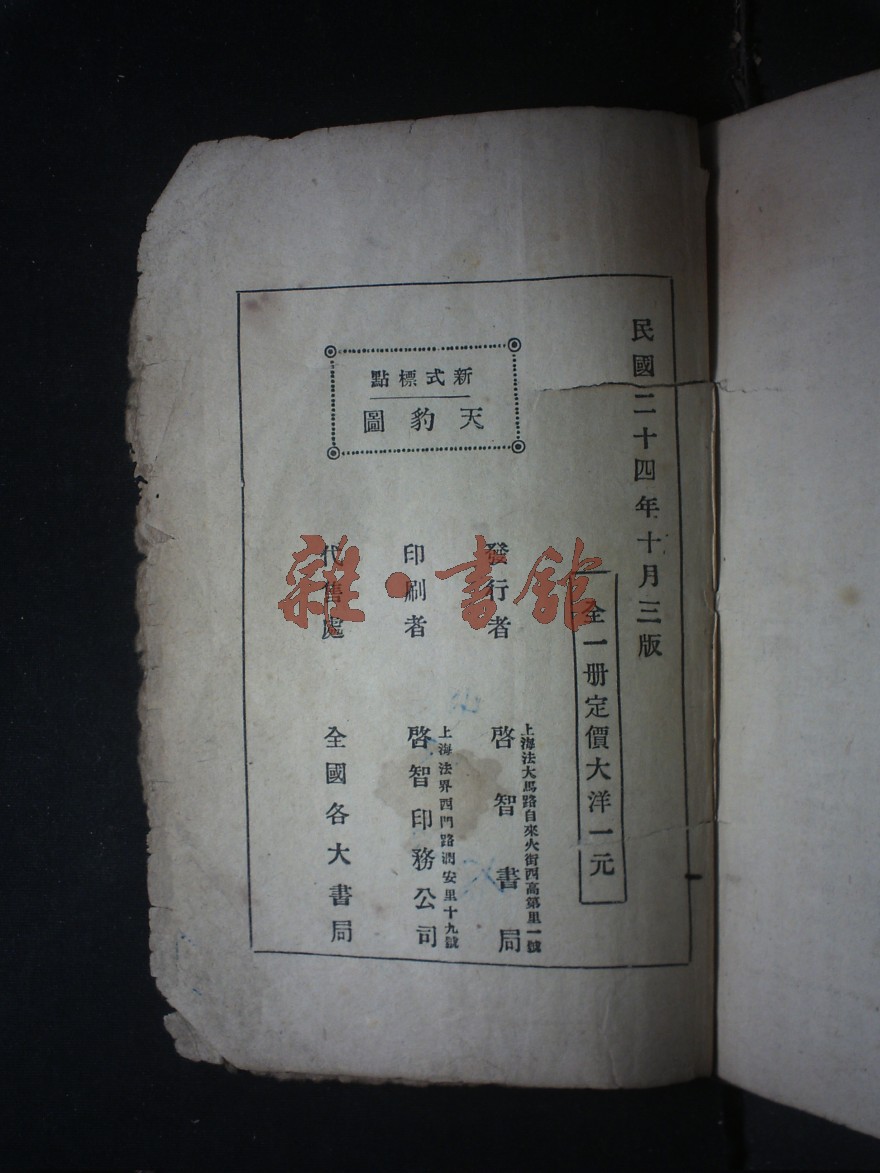 民國二十四年十月三版
全一册定價大洋一元
新式標點
天豹圖
發行者
上海法大馬路自來火街西高第里一號
啓智書局
印刷者
上海法界西門路潤安里十九號
啓智印務公司
代售處
全國各大書局
雜·書館